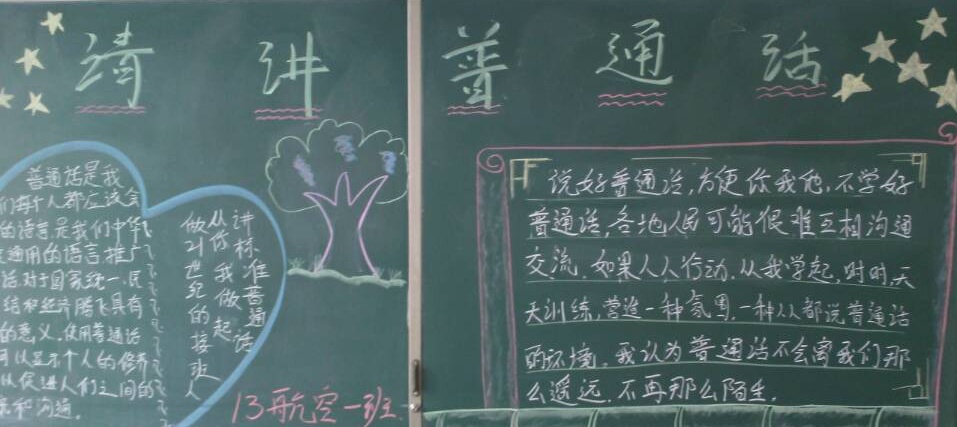 请讲普通话
普通话是我
们每个人都应该会
的语言是我们中华
通用的语言推广
话对于国家统一、民
结和经济腾飞具有
的意义,使用普通话
可以显示个人的修养
以促进人们之间的
和沟通。
讲标准普通话
从你我做起,
做21世纪的接班人
13航空一班
说好普通话,方便你我他,不学好
普通话,各地人民可能很难互相沟通
交流.如果人人行动,从我学起,时时,天
天训练,营造一种氛围,一种从都说普通话
的环境。我认为普通话不会离我们那
么遥远,不再那么陌生.